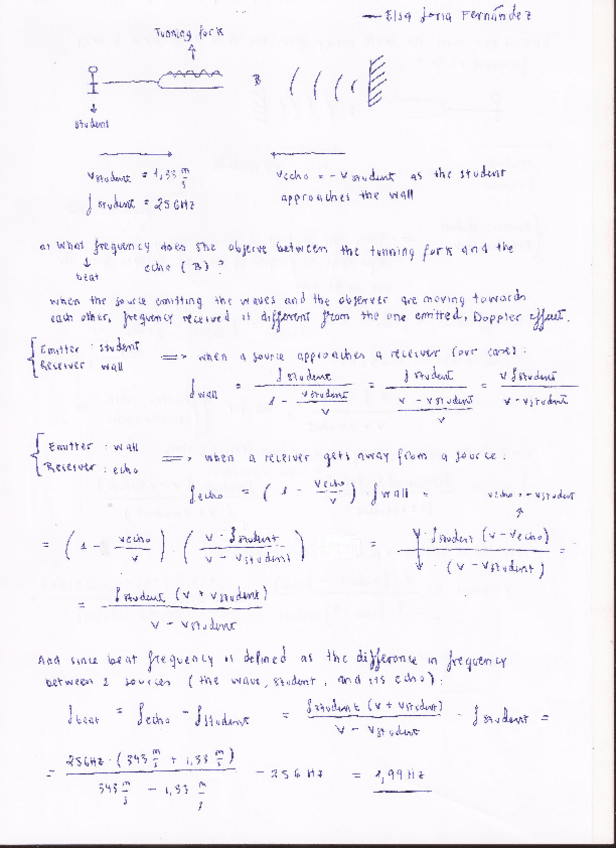 — Elsa Joria Fernández
Tunning fork
B
student
vstudent = 1,33 m/s
vecho = - vstudent as the student
fstudent = 256Hz
approaches the wall
a) What frequency does she observe between the tunning fork and the
beat
echo (B)?
when the source emitting the waves and the observer are moving towards
each other, frequency received is different from the one emitted, Doppler effect.
{ Emitter : student
Receiver : wall ⟹ when a source approaches a receiver (our case):
fwall = fstudent / (1 - vstudent/v) = fstudent / ((v - vstudent)/v) = v fstudent / (v - vstudent)
{ Emitter : wall
Receiver : echo ⟹ when a receiver gets away from a source:
fecho = (1 - vecho/v) · fwall =
vecho = - vstudent
= (1 - vecho/v) · (v · fstudent / (v - vstudent)) = v · fstudent (v - vecho) / v · (v - vstudent) =
= fstudent (v + vstudent) / (v - vstudent)
And since beat frequency is defined as the difference in frequency
between 2 sources (the wave, student, and its echo):
fbeat = fecho - fstudent = fstudent (v + vstudent) / (v - vstudent) - fstudent =
= 256Hz · (343 m/s + 1,33 m/s) / (343 m/s - 1,33 m/s) - 256 Hz = 1,99 Hz